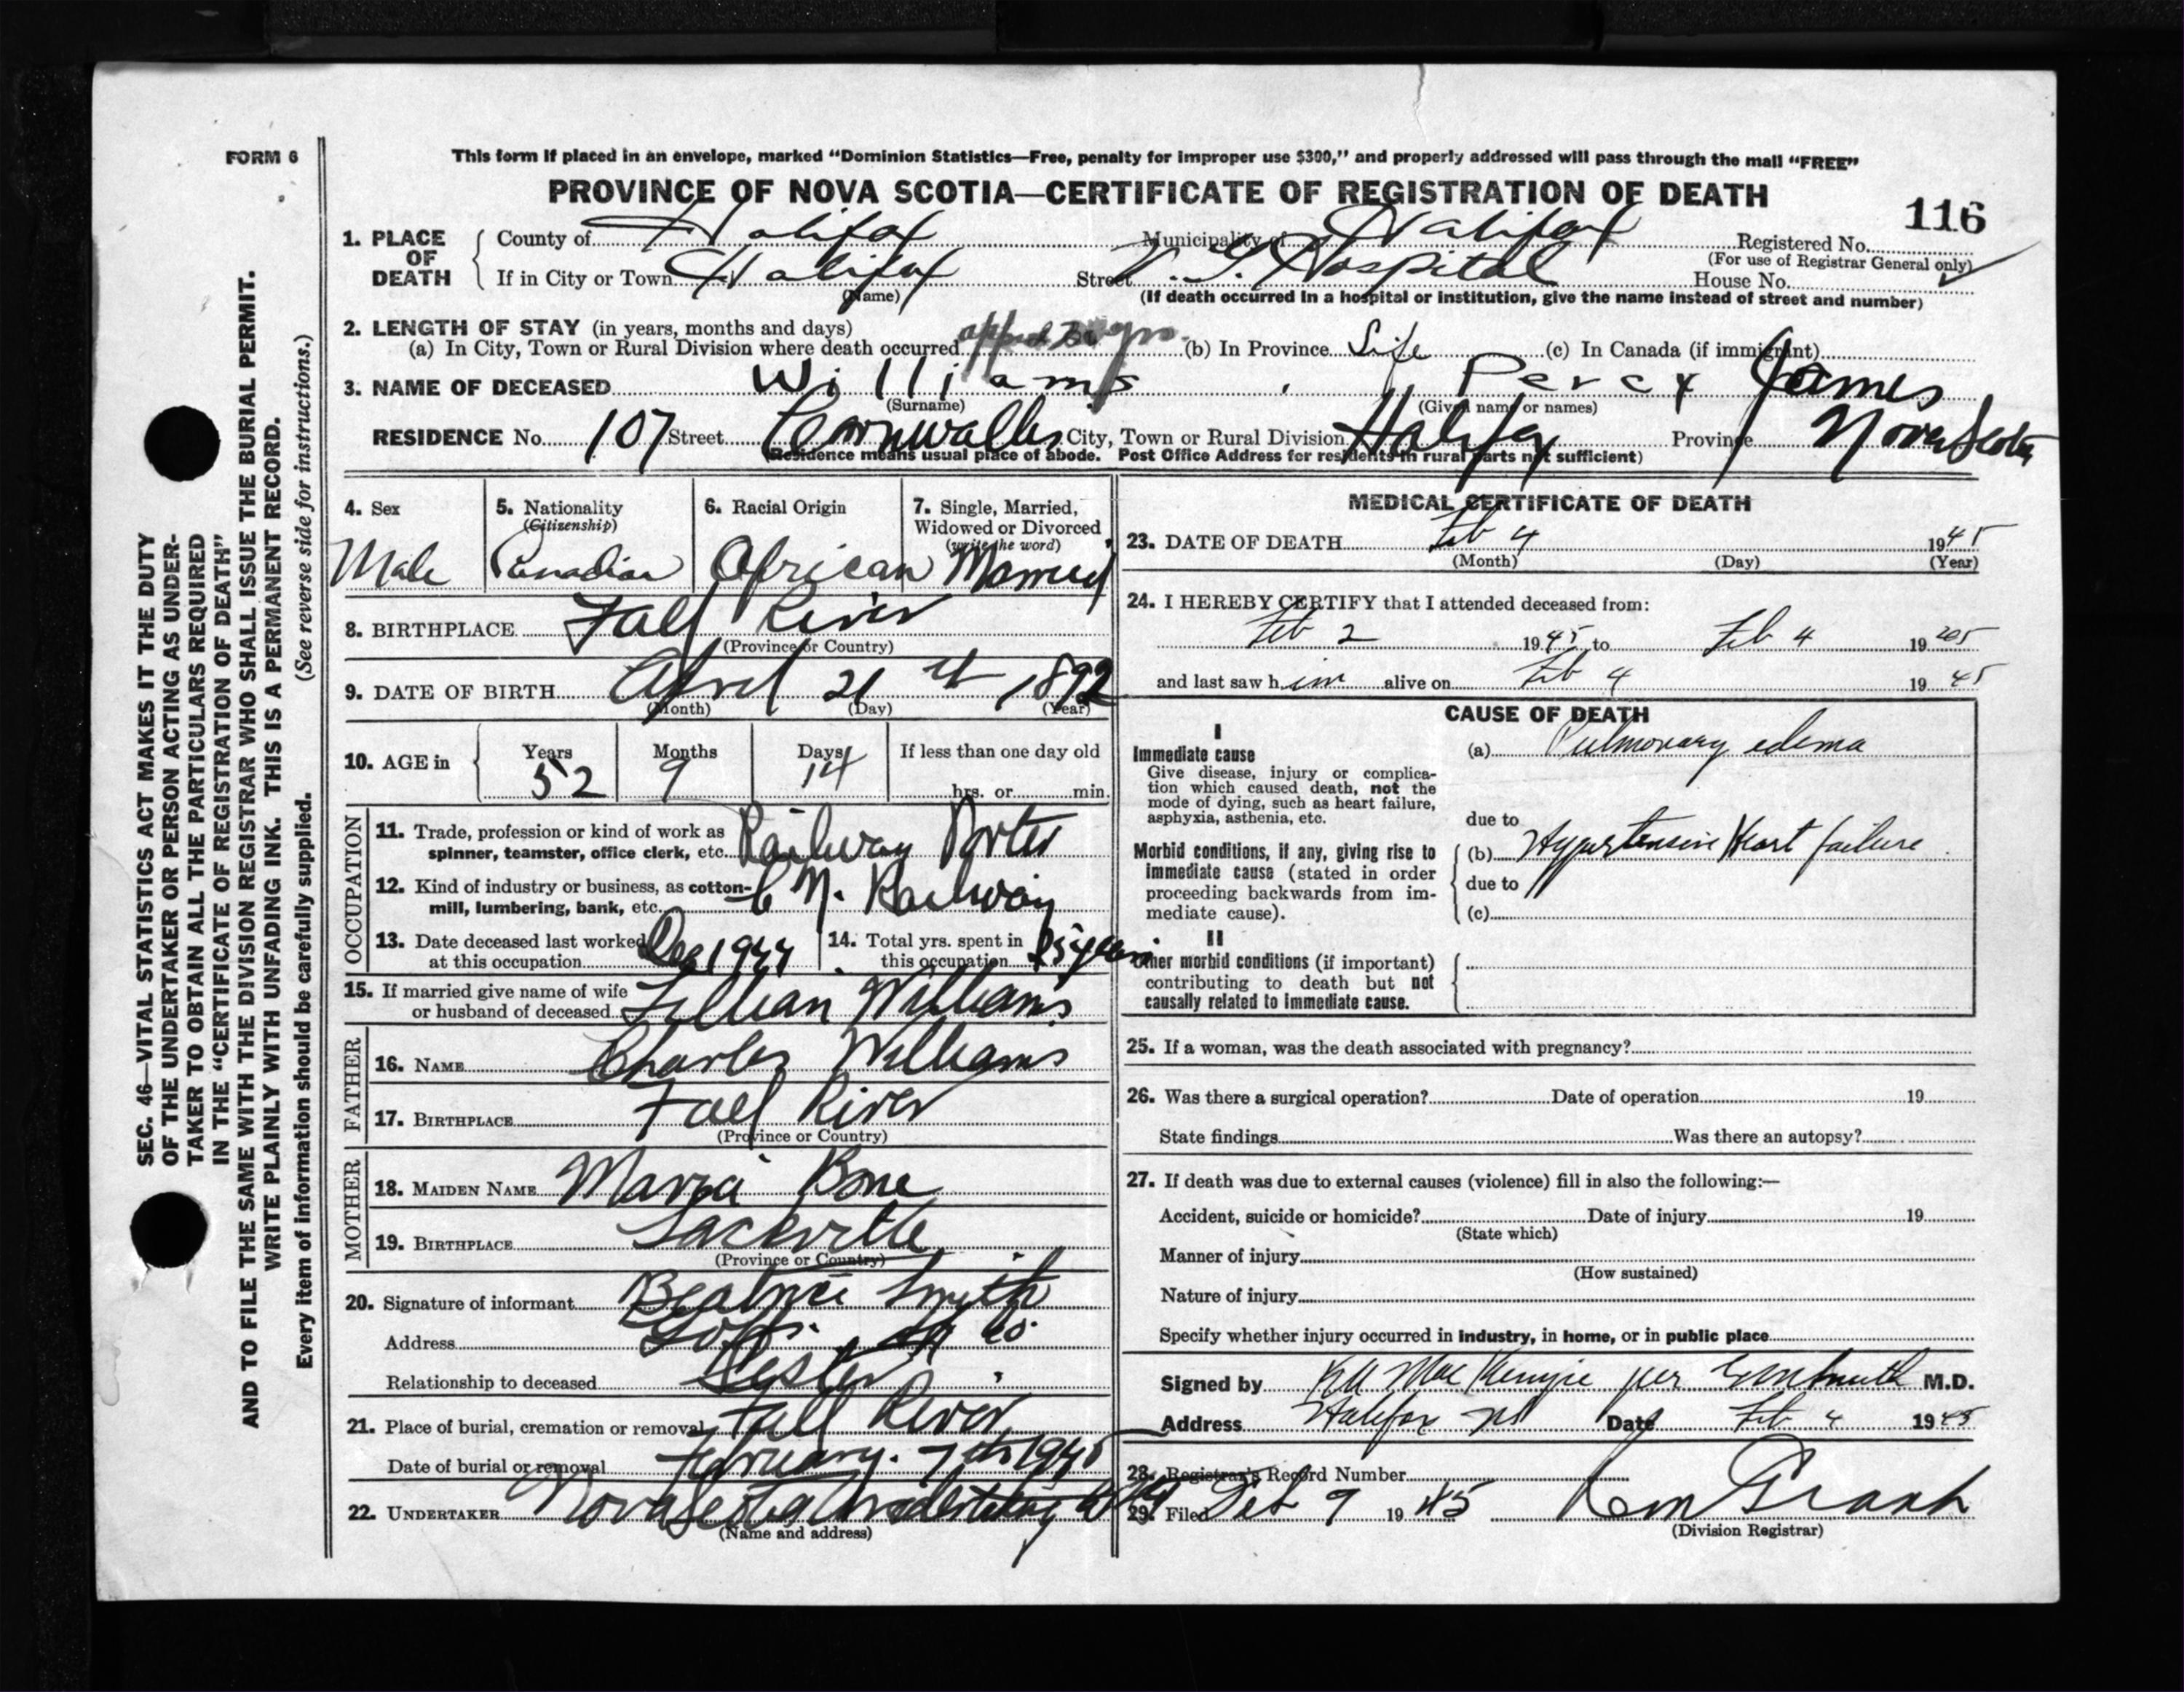 FORM 6
This form if placed in an envelope, marked “Dominion Statistics—Free, penalty for improper use $300,” and properly addressed will pass through the mail “FREE”
PROVINCE OF NOVA SCOTIA—CERTIFICATE OF REGISTRATION OF DEATH
116
1. PLACE OF DEATH
County of Halifax Municipality of Halifax Registered No.
(For use of Registrar General only)
If in City or Town Halifax Street V. G. Hospital House No.
(Name) (If death occurred in a hospital or institution, give the name instead of street and number)
2. LENGTH OF STAY (in years, months and days)
(a) In City, Town or Rural Division where death occurred yrs. (b) In Province Life (c) In Canada (if immigrant)
3. NAME OF DECEASED Williams, Percy James
(Surname) (Given name or names)
RESIDENCE No. 107 Street Cornwallis City, Town or Rural Division Halifax Province Nova Scotia
(Residence means usual place of abode. Post Office Address for residents in rural parts not sufficient)
4. Sex Male
5. Nationality (Citizenship) Canadian
6. Racial Origin African
7. Single, Married, Widowed or Divorced (write the word) Married
8. BIRTHPLACE Fall River
(Province or Country)
9. DATE OF BIRTH April 21st 1892
(Month) (Day) (Year)
10. AGE in Years 52 Months 9 Days 14 If less than one day old hrs. or min.
OCCUPATION
11. Trade, profession or kind of work as spinner, teamster, office clerk, etc. Railway Porter
12. Kind of industry or business, as cotton-mill, lumbering, bank, etc. C N. Railway
13. Date deceased last worked at this occupation Dec 1944
14. Total yrs. spent in this occupation years
15. If married give name of wife or husband of deceased Lillian Williams
FATHER
16. NAME Charles Williams
17. BIRTHPLACE Fall River
(Province or Country)
MOTHER
18. MAIDEN NAME Bone
19. BIRTHPLACE Sackville
(Province or Country)
20. Signature of informant Beatrice Smyth
Address Co.
Relationship to deceased Sister
21. Place of burial, cremation or removal Fall River
Date of burial or removal February 7th 1945
22. UNDERTAKER Nova Scotia Undertaking Co
(Name and address)
MEDICAL CERTIFICATE OF DEATH
23. DATE OF DEATH Feb 4 1945
(Month) (Day) (Year)
24. I HEREBY CERTIFY that I attended deceased from:
Feb 2 1945 to Feb 4 1945
and last saw him alive on Feb 4 1945
CAUSE OF DEATH
I
Immediate cause
Give disease, injury or complication which caused death, not the mode of dying, such as heart failure, asphyxia, asthenia, etc.
(a) Pulmonary edema
due to
Morbid conditions, if any, giving rise to immediate cause (stated in order proceeding backwards from immediate cause).
(b) Hypertensive Heart failure
due to
(c)
II
Other morbid conditions (if important) contributing to death but not causally related to immediate cause.
25. If a woman, was the death associated with pregnancy?
26. Was there a surgical operation? Date of operation 19
State findings Was there an autopsy?
27. If death was due to external causes (violence) fill in also the following:—
Accident, suicide or homicide? Date of injury 19
(State which)
Manner of injury
(How sustained)
Nature of injury
Specify whether injury occurred in industry, in home, or in public place
Signed by MacKenzie per M.D.
Address Halifax NS Date Feb 4 1945
28. Registrar's Record Number
29. Filed Feb 9 1945
(Division Registrar)
SEC. 46—VITAL STATISTICS ACT MAKES IT THE DUTY
OF THE UNDERTAKER OR PERSON ACTING AS UNDER-
TAKER TO OBTAIN ALL THE PARTICULARS REQUIRED
IN THE “CERTIFICATE OF REGISTRATION OF DEATH”
AND TO FILE THE SAME WITH THE DIVISION REGISTRAR WHO SHALL ISSUE THE BURIAL PERMIT.
WRITE PLAINLY WITH UNFADING INK. THIS IS A PERMANENT RECORD.
Every item of information should be carefully supplied. (See reverse side for instructions.)